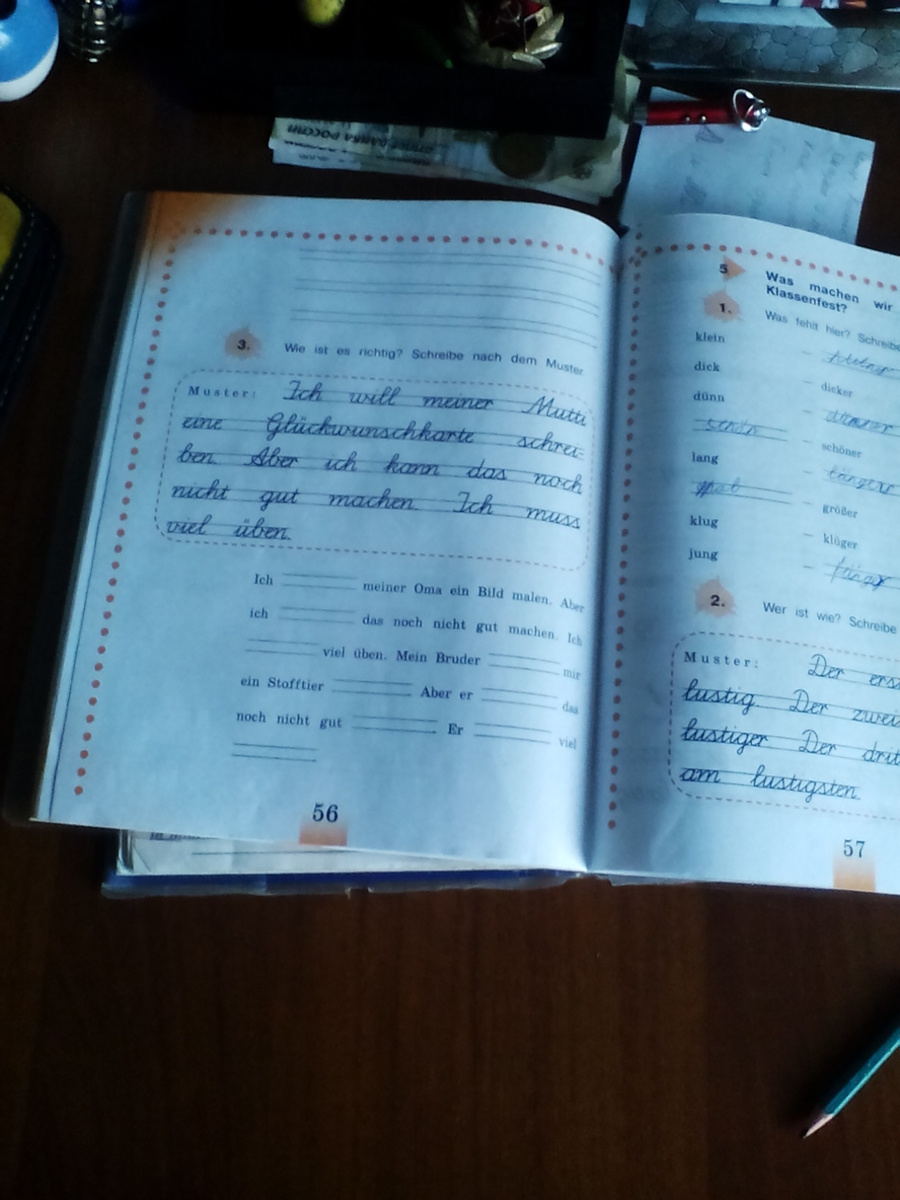 БАНКА РОССИИ
3.
Wie ist es richtig? Schreibe nach dem Muster
Muster: Ich will meiner Mutti
eine Glückwunschkarte schrei-
ben. Aber ich kann das noch
nicht gut machen. Ich muss
viel üben.
Ich meiner Oma ein Bild malen. Aber
ich das noch nicht gut machen. Ich
viel üben. Mein Bruder mir
ein Stofftier Aber er das
noch nicht gut Er viel
56
5 Was machen wir
Klassenfest?
1. Was fehlt hier? Schreibe
klein –
dick – dicker
dünn – dünner
schön – schöner
lang – länger
– größer
klug – klüger
jung –
2. Wer ist wie? Schreibe
Muster: Der ers
lustig. Der zwei
lustiger. Der drit
am lustigsten.
57